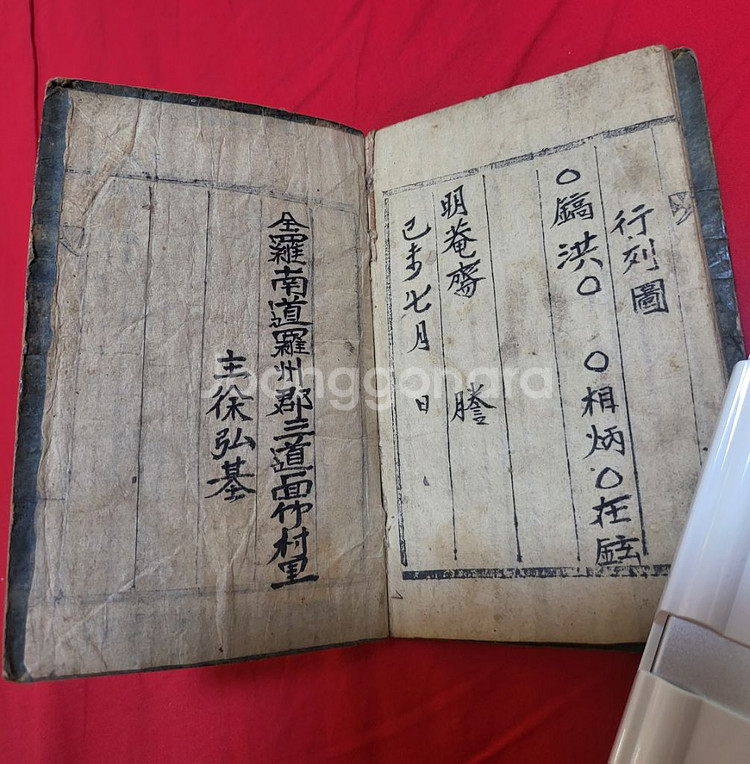 行列圖
○鎬 洪○ ○相炳○在
明菴齋 謄
己未七月 日
全羅南道羅州郡三道面村里
主徐弘基
Joonggonara